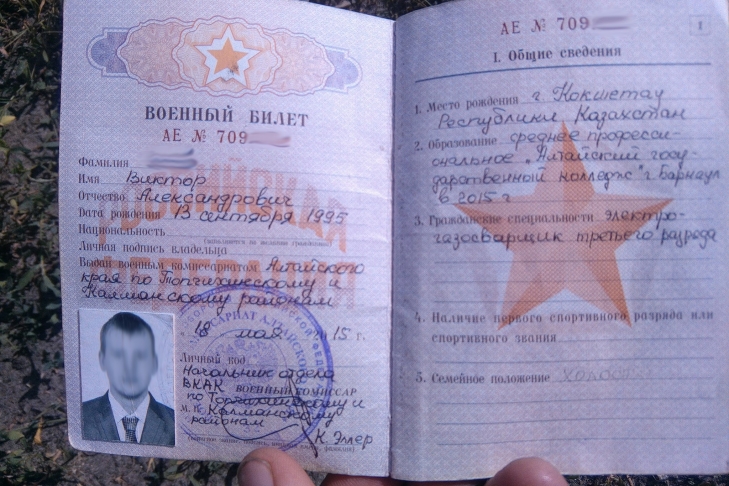 ВОЕННЫЙ БИЛЕТ
АЕ № 709
Фамилия
Имя Виктор
Отчество Александрович
Дата рождения 13 сентября 1995
Национальность
(заполняется по желанию гражданина)
Личная подпись владельца
Выдан военным комиссариатом Алтайского
края по Топчихинскому и
Калманскому районам
18 мая 2015 г.
Личный код
Начальник отдела
ВКАК ВОЕННЫЙ КОМИССАР
по Топчихинскому и
М.П. Калманскому
районам
К. Эллер
АЕ № 709
1
I. Общие сведения
1. Место рождения г. Кокшетау
Республики Казахстан
2. Образование среднее професси-
ональное "Алтайский госу-
дарственный колледж" г. Барнаул
в 2015 г
3. Гражданские специальности электро-
газосварщик третьего разряда
4. Наличие первого спортивного разряда или
спортивного звания
5. Семейное положение холост